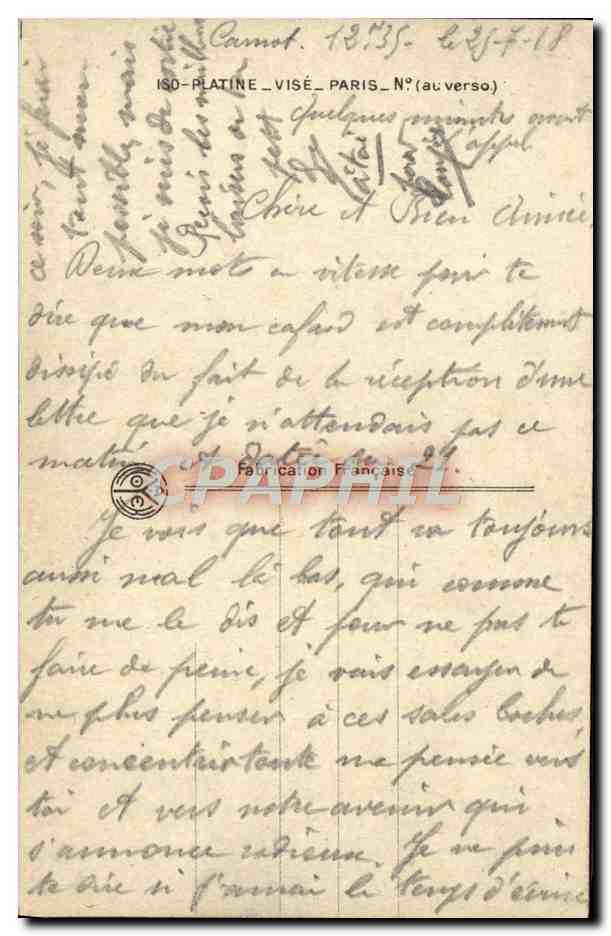 Carnot. 12h35. le 25-7-18
ISO-PLATINE_VISÉ_PARIS_N° (au verso)
Quelques minutes avant
l'appel
Chère et Bien Aimée,
Deux mots en vitesse pour te
dire que mon cafard est complètement
dissipé du fait de la réception d'une
lettre que je n'attendais pas ce
matin et datée du 21.
Fabrication Française
CPAPHIL
Je vois que tout va toujours
aussi mal là bas, qui comme
tu me le dis et pour ne pas te
faire de peine, je vais essayer de
ne plus penser à ces sales boches
et concentrer toute ma pensée vers
toi et vers notre avenir qui
s'annonce radieux. Je ne puis
te dire si j'aurai le temps d'écrire
ce soir, je ferai
tout mon
possible, mais
je suis de sortie
Reçois les meilleurs
baisers de ton
petit